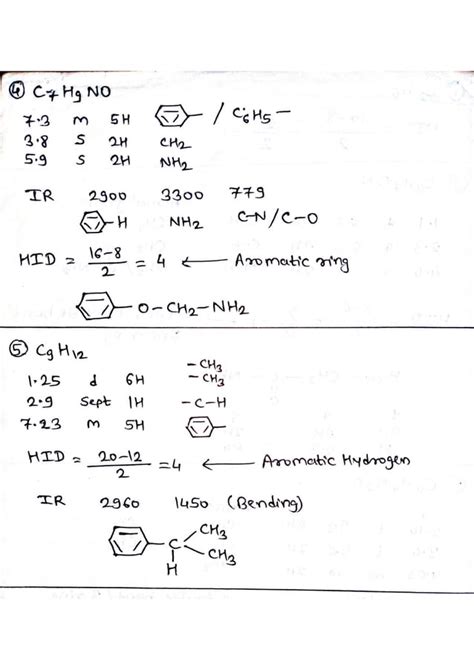 ④ C7H9NO
7.3 m 5H / C6H5-
3.8 S 2H CH2
5.9 S 2H NH2
IR 2900 3300 779
-H NH2 C-N/C-O
HID = 16-8/2 = 4 ← Aromatic ring
-O-CH2-NH2
⑤ C9H12
-CH3
1.25 d 6H -CH3
2.9 Sept 1H -C-H
7.23 m 5H
HID = 20-12/2 = 4 ← Aromatic Hydrogen
IR 2960 1450 (Bending)
CH3
-C
CH3
H